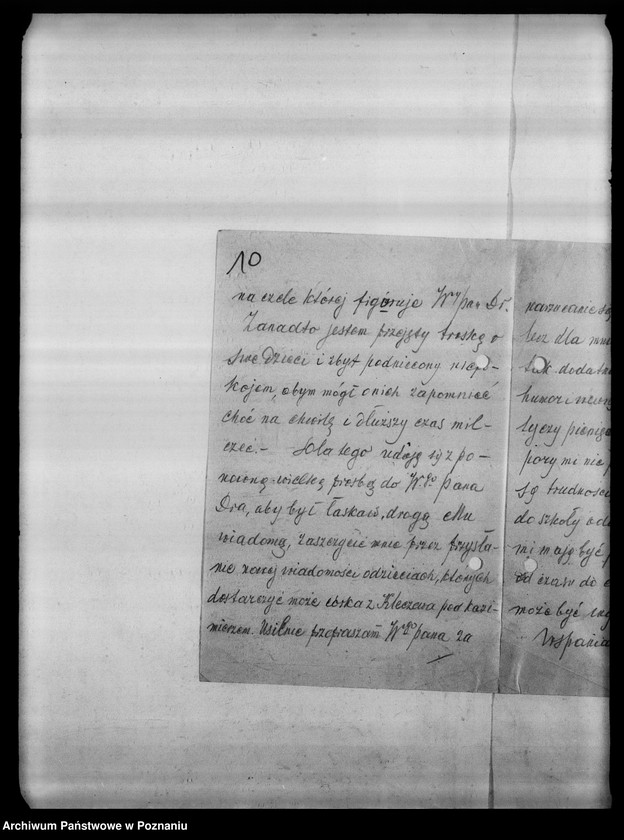 10
na czele której figuruje Wny pan Dr.
Zanadto jestem przejęty troską o
swe dzieci i zbyt podniecony niepo-
kojem, abym mógł o nich zapomnieć
choć na chwilę i dłuższy czas mil-
czeć.- Dlatego udaję się z po-
nowną wielką prośbą do W.go pana
Dra, aby był łaskaw, drogą Mu
wiadomą, zaszczycić mnie przez przysła-
nie nowej wiadomości o dzieciach, których
dostarczyć może córka z Kleczewa pod Kazi-
mierzem. Usilnie przepraszam W go pana za
lecz dla
tak
humor i
tyczy
pory mi nie
są trudności
do szkoły
mi mają być
od czasu do
może być
Archiwum Państwowe w Poznaniu